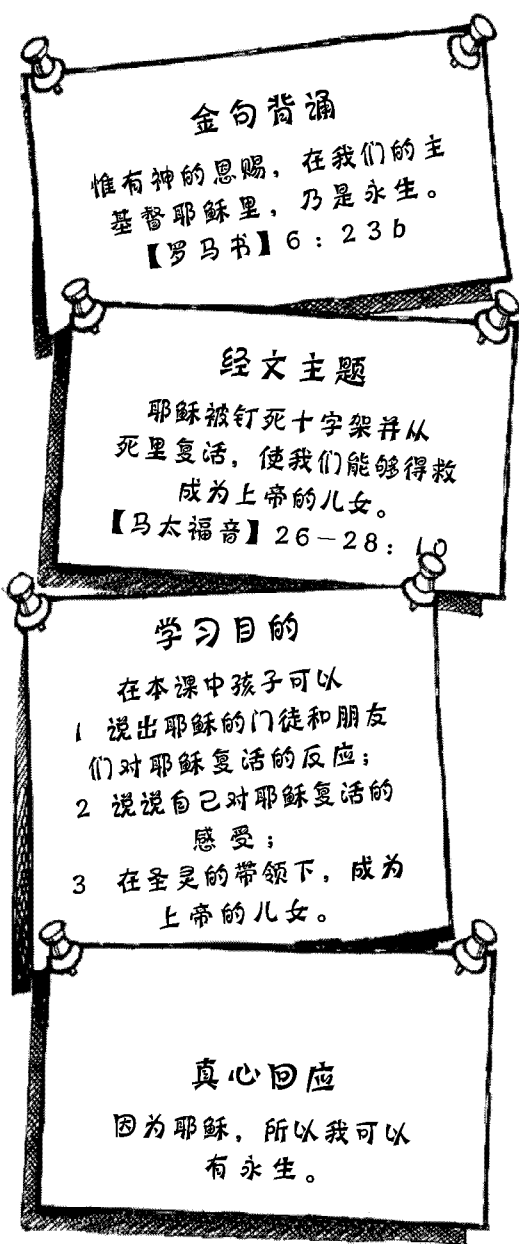 金句背诵
惟有神的恩赐，在我们的主
基督耶稣里，乃是永生。
【罗马书】6：23b
经文主题
耶稣被钉死十字架并从
死里复活，使我们能够得救
成为上帝的儿女。
【马太福音】26－28：10
学习目的
在本课中孩子可以
1 说出耶稣的门徒和朋友
们对耶稣复活的反应；
2 说说自己对耶稣复活的
感受；
3 在圣灵的带领下，成为
上帝的儿女。
真心回应
因为耶稣，所以我可以
有永生。